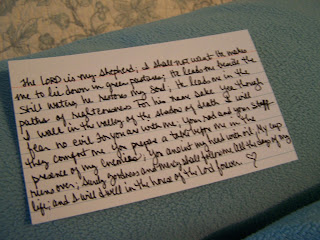 The LORD is my Shepherd; I shall not want. He makes
me to lie down in green pastures; He leads me beside the
still waters; He restores my soul; He leads me in the
paths of righteousness for his name sake. Yea though
I walk in the valley of the shadow of death I will
fear no evil for you are with me; Your rod and your staff
they comfort me. You prepare a table before me in the
presence of my enemies; You anoint my head with oil; my cup
runs over; Surely goodness and mercy shall follow me all the days of my
life; and I will dwell in the house of the Lord forever ♡